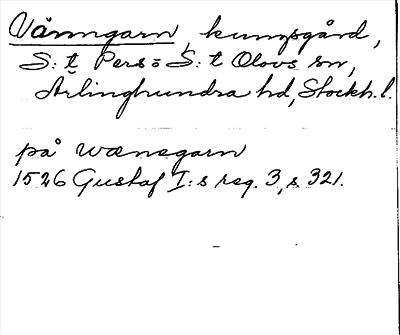 Vänngarn, kungsgård,
S:t Pers o S:t Olovs sn,
Ärlinghundra hd, Stockh. l.
på wænegarn
1526 Gustaf I:s reg. 3, s. 321.